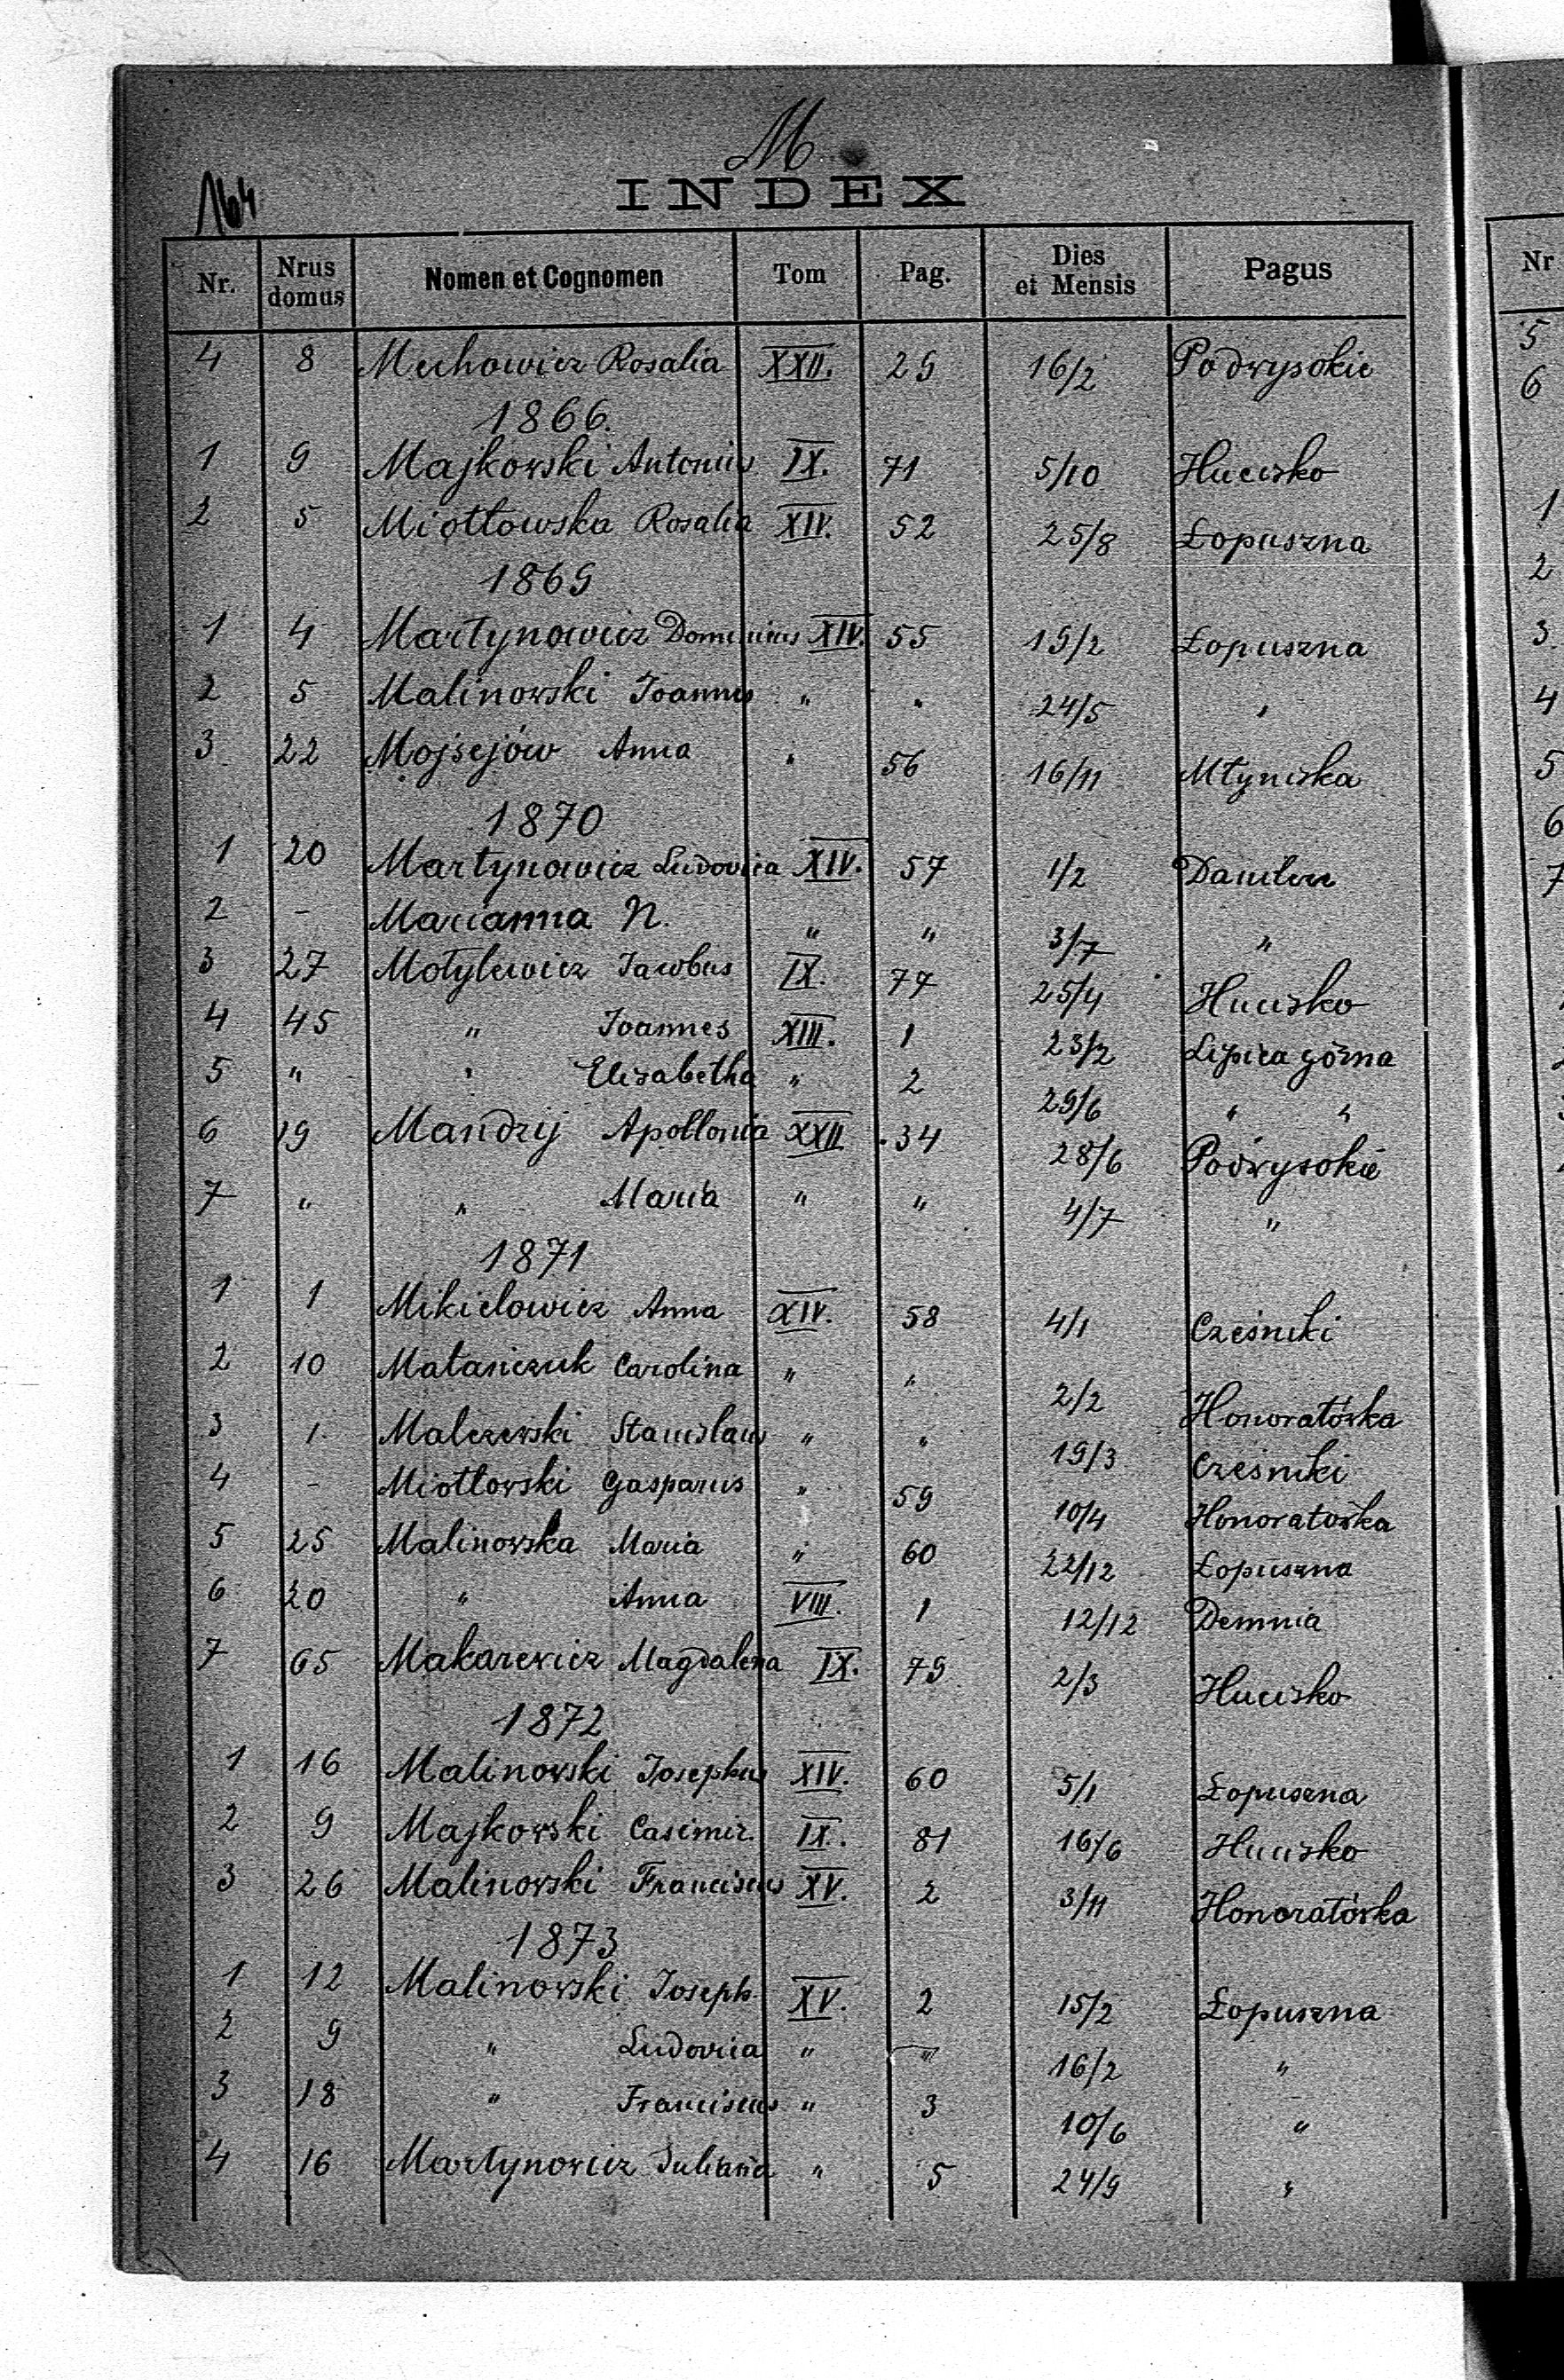 M
INDEX
164
Nr. Nrus domus Nomen et Cognomen Tom Pag. Dies et Mensis Pagus
4 8 Mechowicz Rosalia XXII. 29 16/2 Podwysokie
1866.
1 9 Majkowski Antonius IX. 71 5/10 Hucisko
2 5 Miotłowska Rosalia XIV. 52 25/8 Łopuszna
1869
1 4 Martynowicz Dominicus XIV. 55 19/2 Łopuszna
2 5 Malinowski Joannes " " 24/5 "
3 22 Mojsejów Anna " 56 16/11 Młyniska
1870
1 20 Martynowicz Ludovica XIV. 57 1/2 Danilcze
2 - Marianna N. " " 3/7 "
3 27 Motylewicz Jacobus IX. 77 25/4 Hucisko
4 45 " Joannes XIII. 1 23/2 Lipica górna
5 " " Elisabetha " 2 29/6 " "
6 19 Mandzij Apollonia XXII 34 28/6 Podwysokie
7 " " Maria " " 4/7 "
1871
1 1 Mikielowicz Anna XIV. 58 4/1 Cześniki
2 10 Matasiczuk Carolina " " 2/2 Honoratówka
3 1 Malczewski Stanislaus " " 19/3 Cześniki
4 - Miotłowski Gasparus " 59 10/4 Honoratówka
5 25 Malinowska Maria " 60 22/12 Łopuszna
6 20 " Anna VIII. 1 12/12 Demnia
7 65 Makarewicz Magdalena IX. 79 2/3 Hucisko
1872
1 16 Malinowski Josephus XIV. 60 5/1 Łopuszna
2 9 Majkowski Casimir. IX. 81 16/6 Hucisko
3 26 Malinowski Franciscus XV. 2 3/11 Honoratówka
1873
1 12 Malinowski Joseph. XV. 2 15/2 Łopuszna
2 9 " Ludovica " " 16/2 "
3 18 " Franciscus " 3 10/6 "
4 16 Martynowicz Juliana " 5 24/9 "
Nr
5
6
1
2
3
4
5
6
7